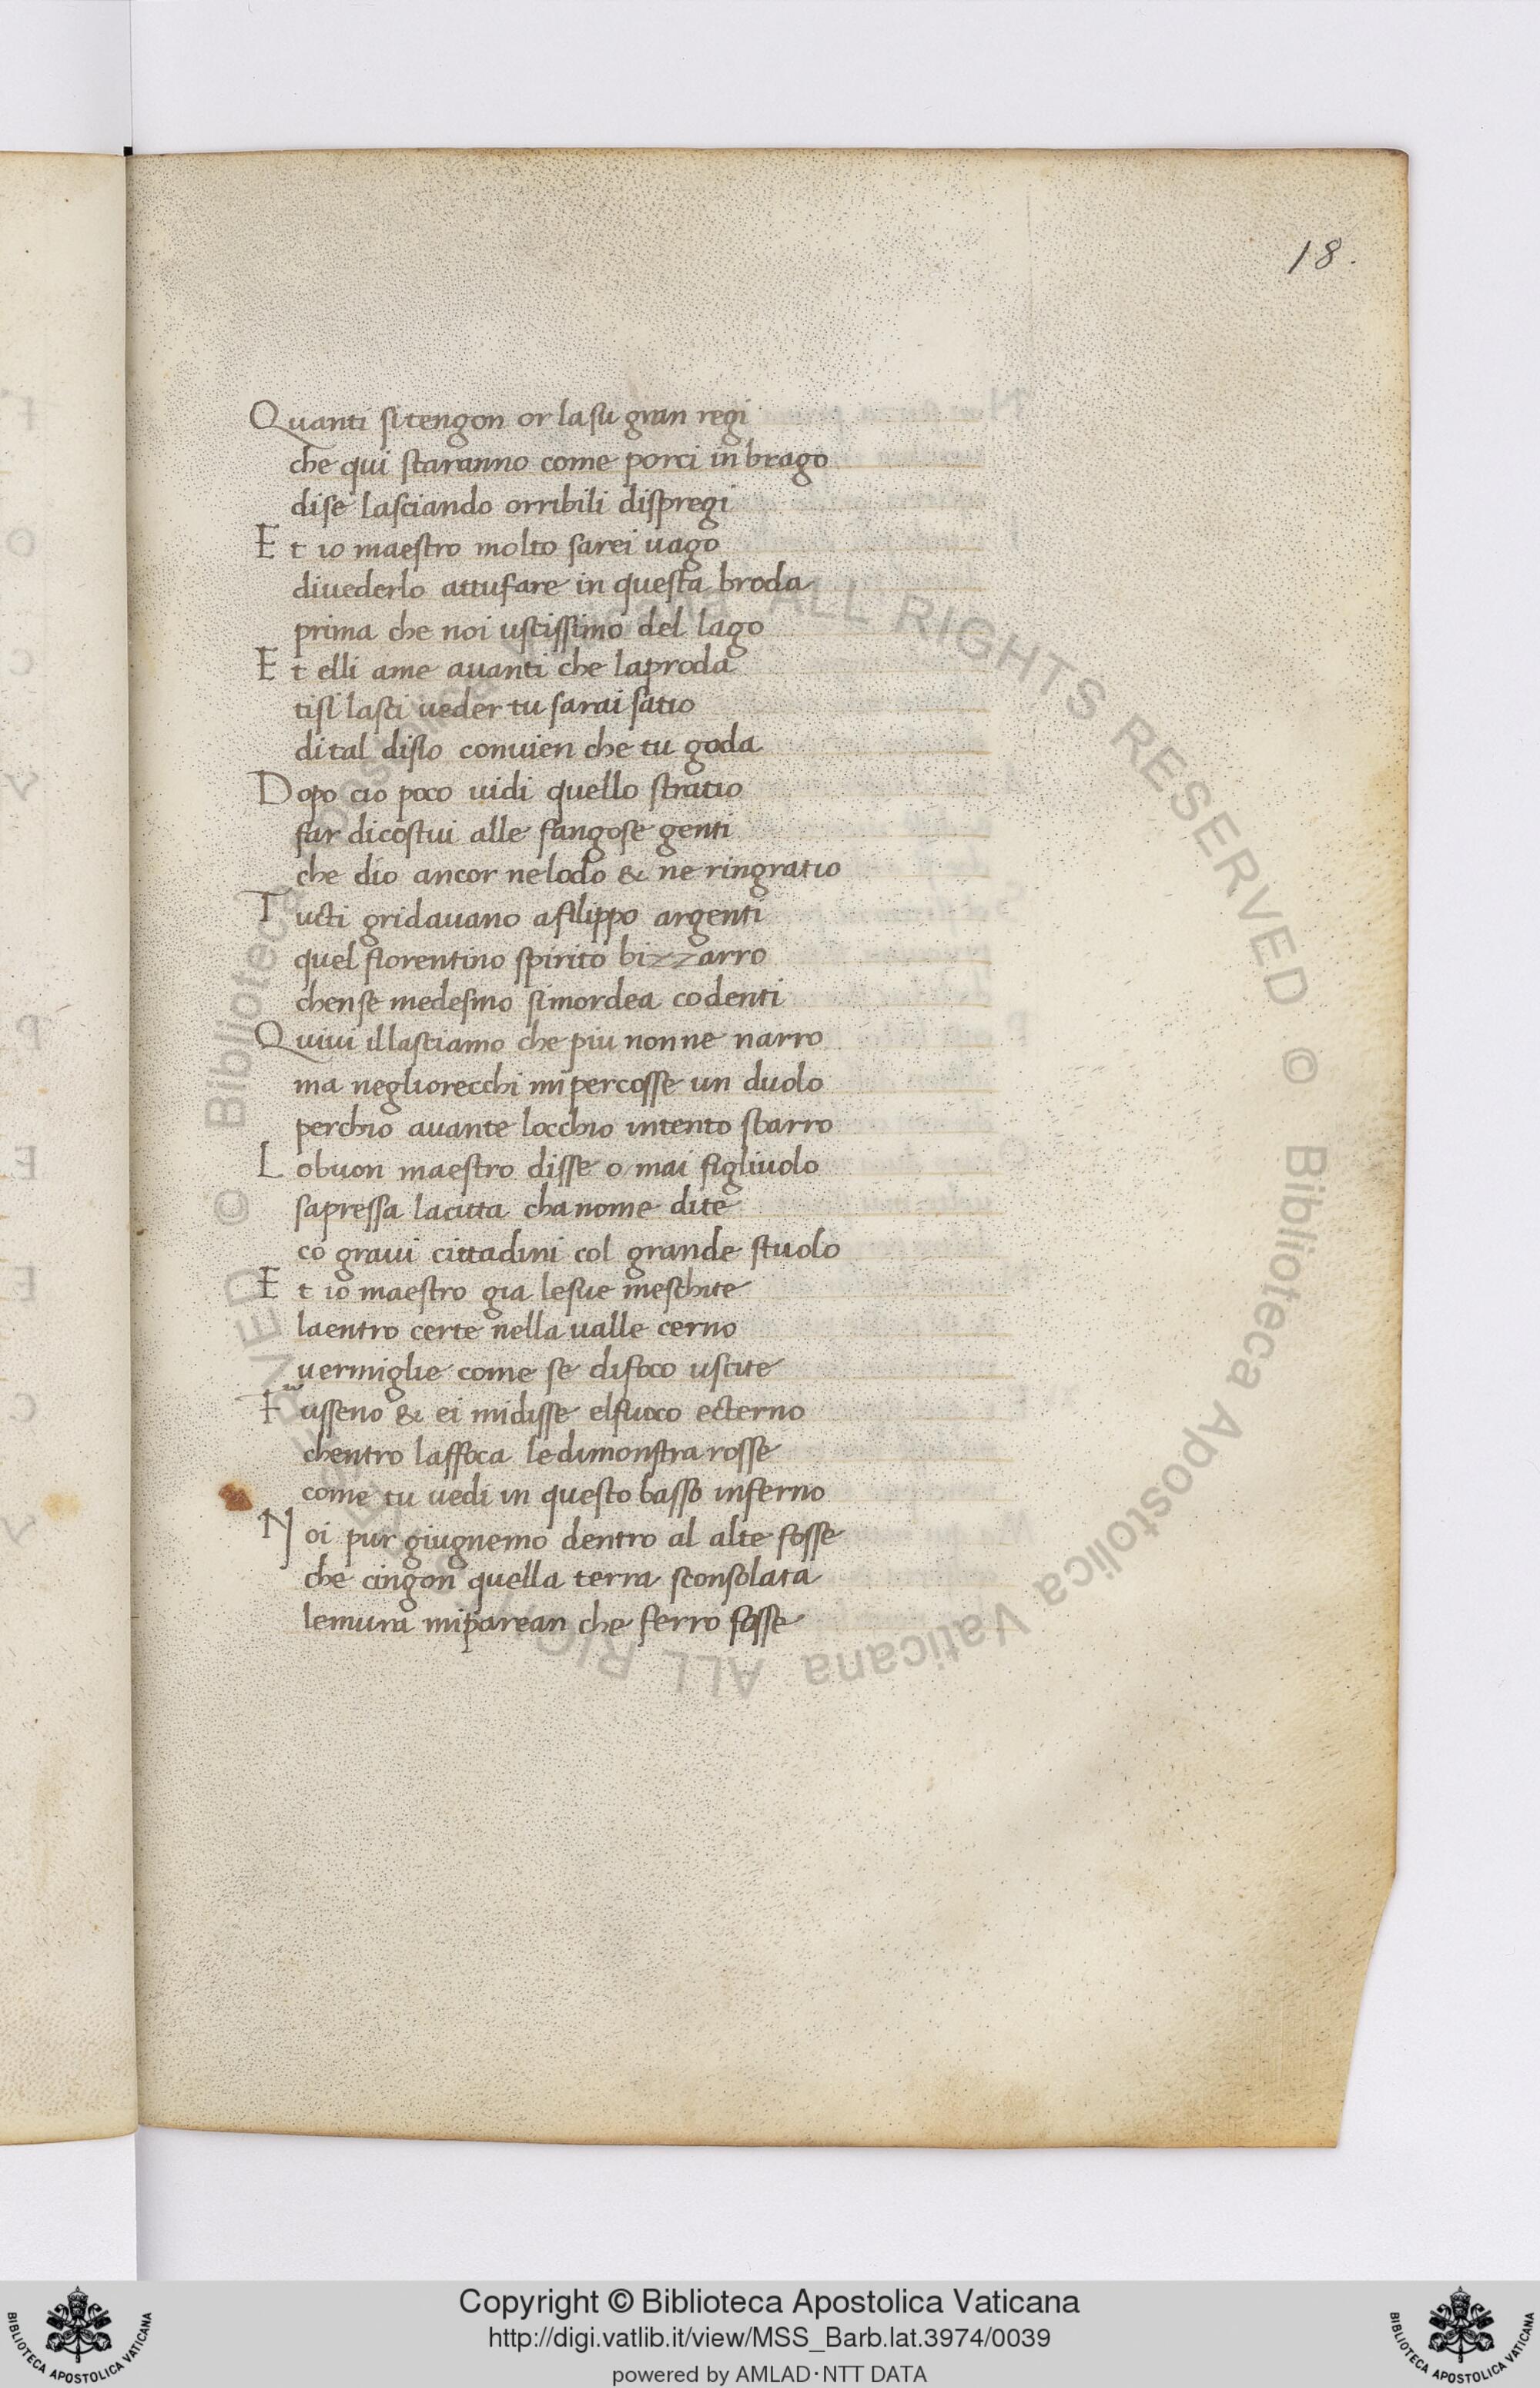 18.
Quanti si tengon or la su gran regi
che qui staranno come porci in brago
dise lasciando orribili dispregi
Et io maestro molto sarei uago
diuederlo attufare in questa broda
prima che noi uscissimo del lago
Et elli ame auanti che laproda
tisi lasci ueder tu sarai satio
dital disio conuien che tu goda
Dopo cio poco uidi quello stratio
far dicostui alle fangose genti
che dio ancor nelodo & ne ringratio
Tucti gridauano afilippo argenti
quel fiorentino spirito bizzarro
chense medesmo simordea codenti
Quiui illasciamo che piu nonne narro
ma negliorecchi mi percosse un duolo
perchio auante locchio intento sbarro
Lobuon maestro disse o mai figliuolo
sapressa lacitta cha nome dite
co graui cittadini col grande stuolo
Et io maestro gia lesue meschite
laentro certe nella ualle cerno
uermiglie come se difoco uscite
Fusseno & ei midisse elfuoco ecterno
chentro laffoca le dimonstra rosse
come tu uedi in questo basso inferno
Noi pur giugnemo dentro al alte fosse
che cingon quella terra sconsolata
lemura miparean che ferro fosse
© Biblioteca Apostolica Vaticana ALL RIGHTS RESERVED © Biblioteca Apostolica Vaticana ALL RIGHTS RESERVED
Copyright © Biblioteca Apostolica Vaticana
http://digi.vatlib.it/view/MSS_Barb.lat.3974/0039
powered by AMLAD·NTT DATA
BIBLIOTECA APOSTOLICA VATICANA
BIBLIOTECA APOSTOLICA VATICANA